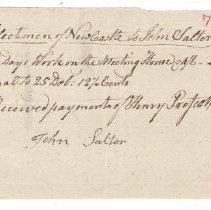 7
lectmen of Newcastle to John Salter
days Work on the Meeting House
to 25 Dol: 12½ Cents
eceived payment of Henry Prescott
John Salter